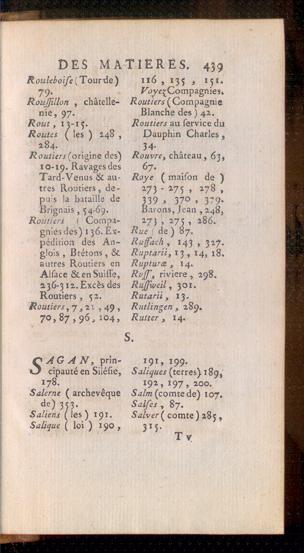 DES MATIERES. 439
Rouleboise (Tour de)
79.
Roussillon, châtelle-
nie, 97.
Rout, 13-15.
Routes (les) 248,
284.
Routiers (origine des)
10-19. Ravages des
Tard-Venus & au-
tres Routiers, de-
puis la bataille de
Brignais, 54-69.
Routiers (Compa-
gnies des) 136. Ex-
pédition des An-
glois, Brétons, &
autres Routiers en
Alsace & en Suisse,
236-312. Excès des
Routiers, 52.
Routiers, 7, 21, 49,
70, 87, 96, 104,
116, 135, 151.
Voyez Compagnies.
Routiers (Compagnie
Blanche des) 42.
Routiers au service du
Dauphin Charles,
34.
Rouvre, château, 63,
67.
Roye (maison de)
273-275, 278,
339, 370, 379.
Barons, Jean, 248,
273, 275, 286.
Rue (de) 87.
Ruffach, 143, 327.
Ruptarii, 13, 14, 18.
Rupturæ, 14.
Russ, riviere, 298.
Russweil, 301.
Rutarii, 13.
Rutlingen, 289.
Rutter, 14.
S.
SAGAN, prin-
cipauté en Silésie,
178.
Salerne (archevêque
de) 353.
Saliens (les) 191.
Salique (loi) 190,
191, 199.
Saliques (terres) 189,
192, 197, 200.
Salm (comte de) 107.
Salses, 87.
Salver (comte) 285,
315.
T v